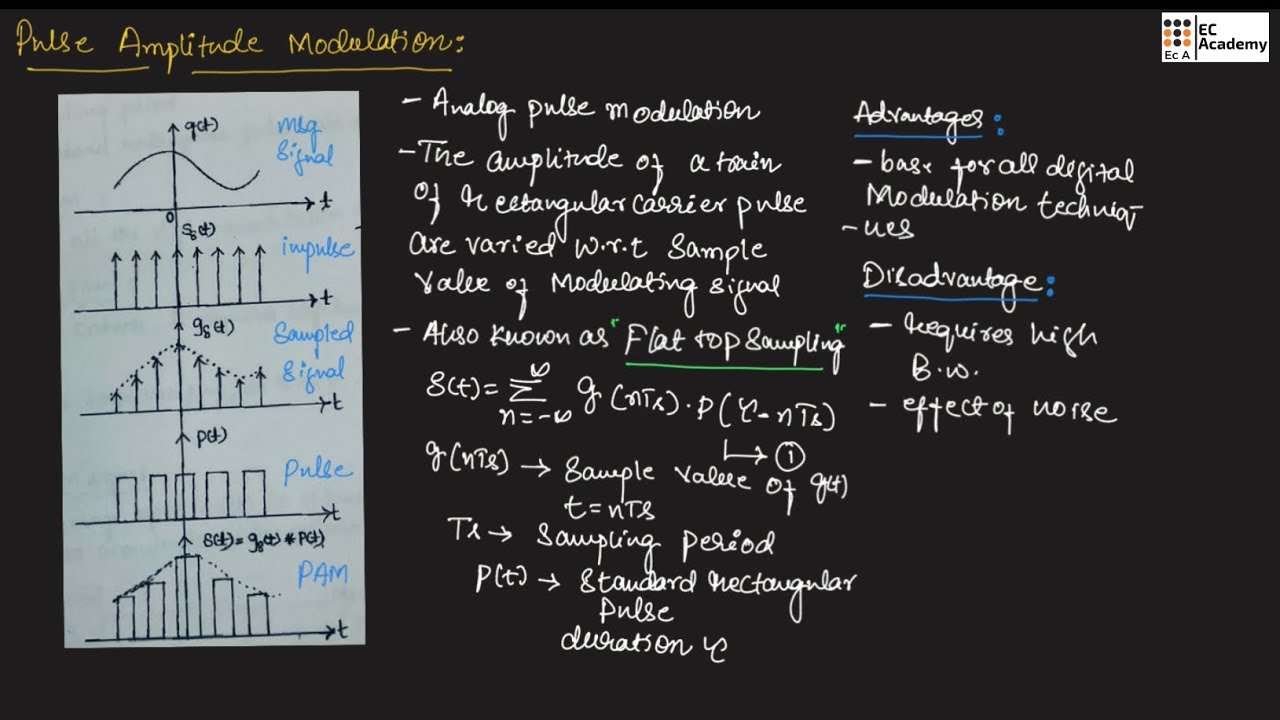 Pulse Amplitude Modulation:
EC
Academy
Ec A
g(t)
Msg
Signal
t
0
Sδ(t)
impulse
t
gδ(t)
Sampled
Signal
t
P(t)
Pulse
t
S(t)= gδ(t) * P(t)
PAM
t
- Analog pulse modulation
- The amplitude of a train
of rectangular carrier pulse
are varied w.r.t Sample
value of Modulating signal
- Also known as "Flat top Sampling"
S(t) = ∑ g(nTs). P(τ - nTs)
n=-∞
∞
↳ ①
g(nTs) → Sample value of g(t)
t = nTs
Ts → Sampling period
P(t) → Standard rectangular
Pulse
duration τ
Advantages:
- base for all digital
Modulation techniq
- ues
Disadvantage:
- requires high
B.w.
- effect of noise